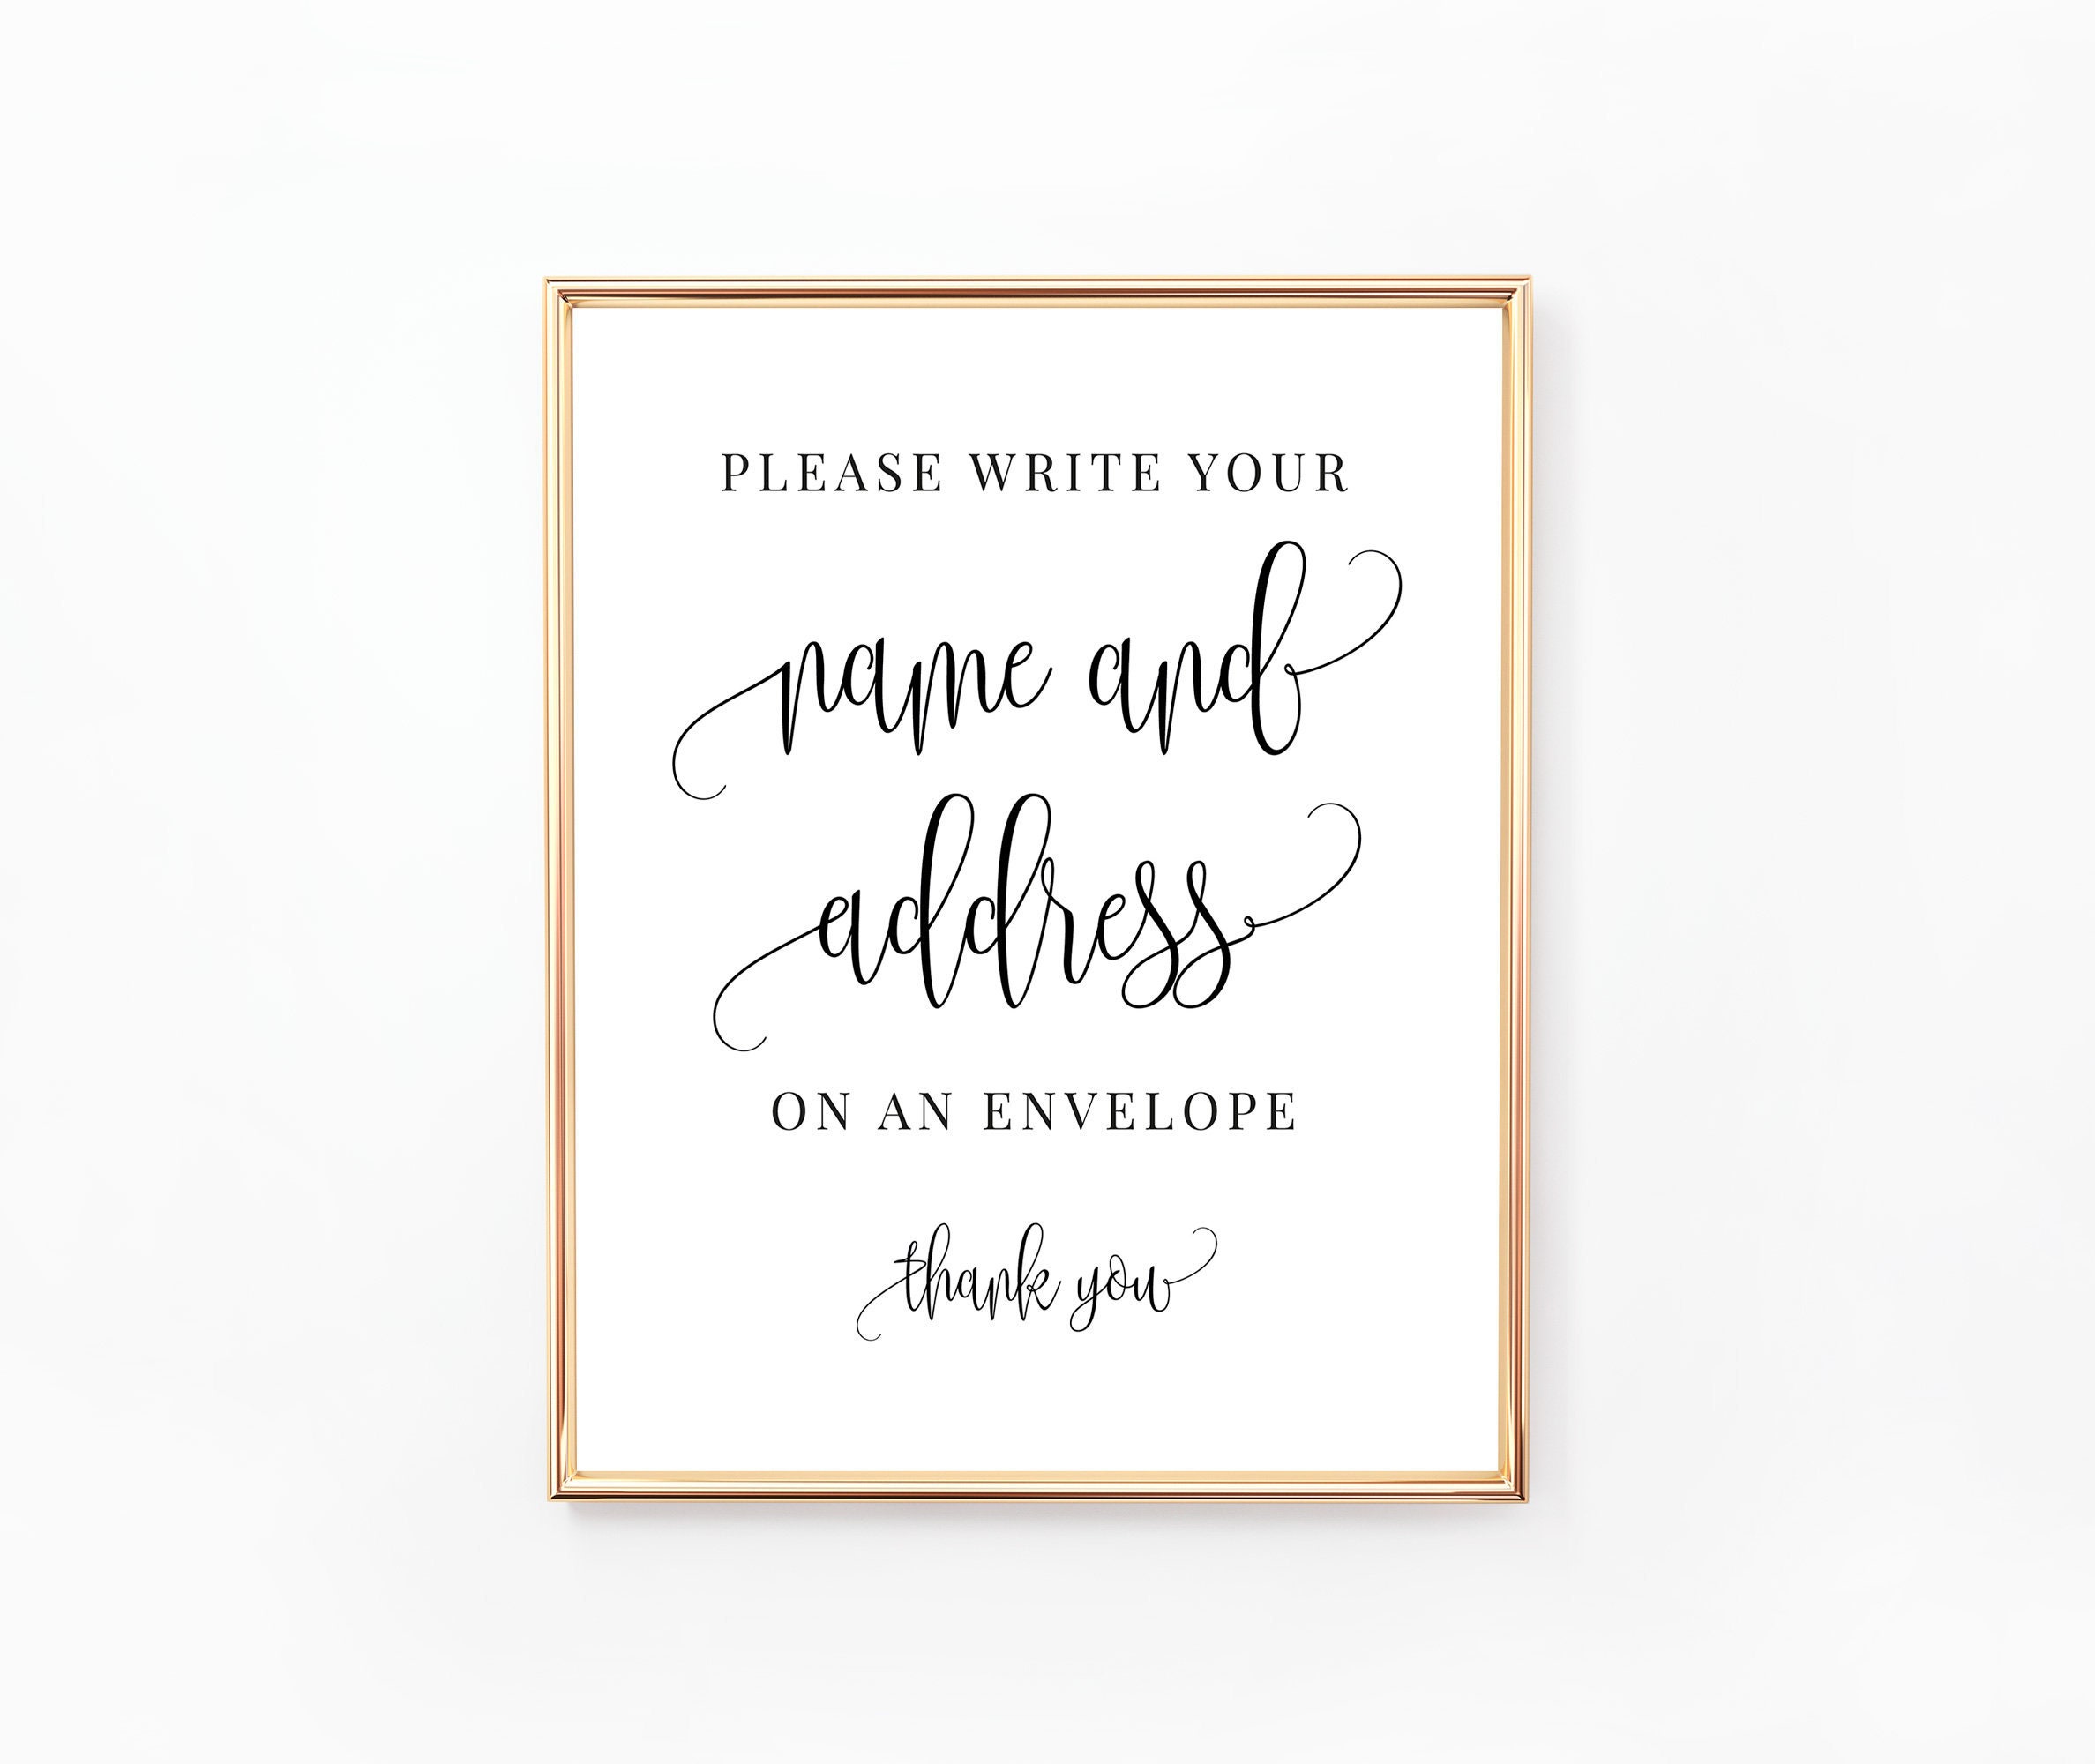 PLEASE WRITE YOUR
name and
address
ON AN ENVELOPE
thank you